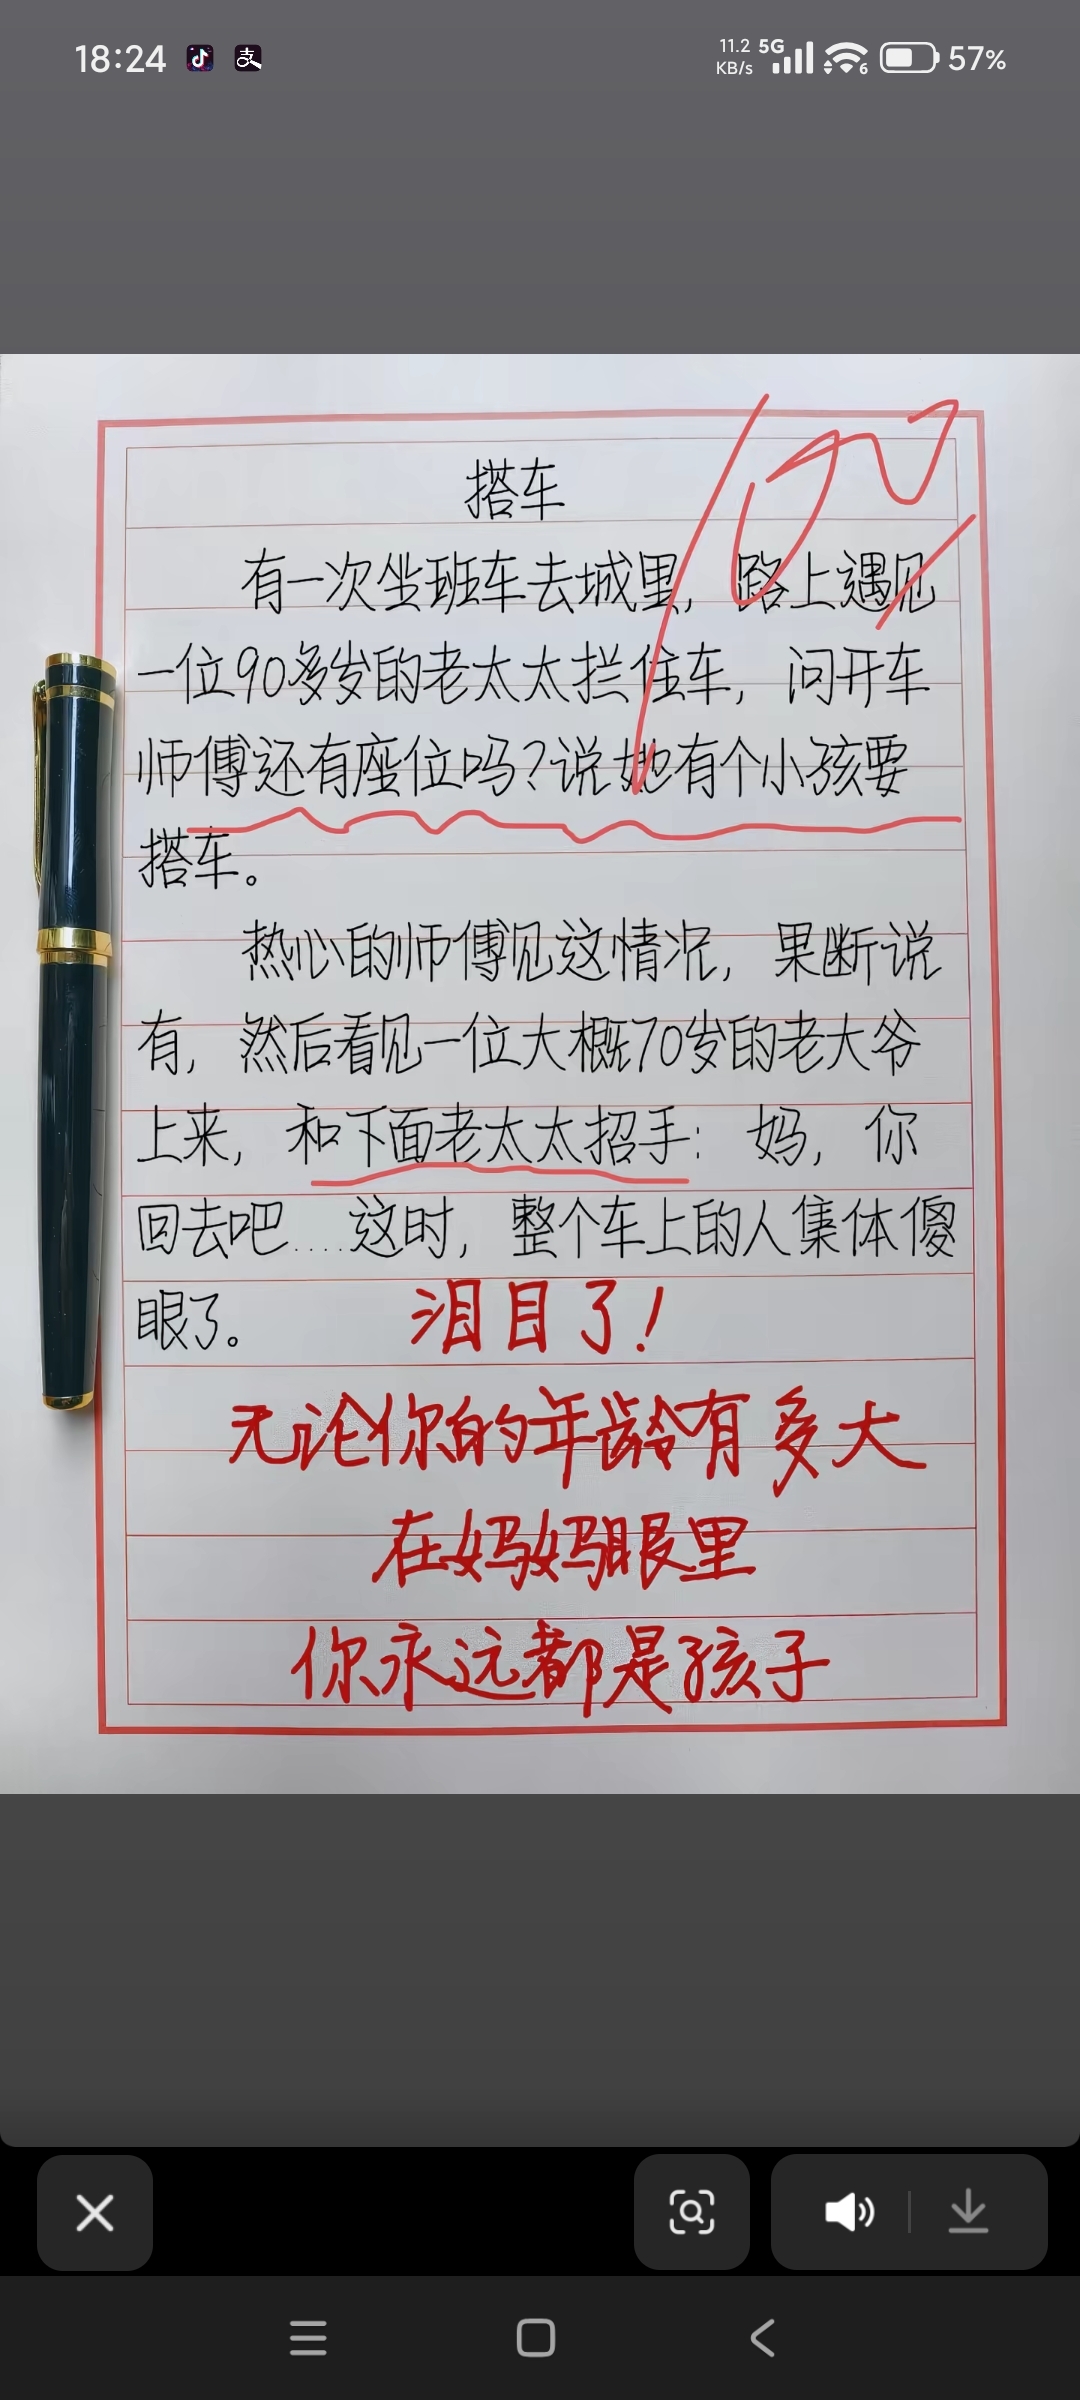 18:24
11.2 KB/s 5G 6 57%
100
搭车
有一次坐班车去城里, 路上遇见
一位90多岁的老太太拦住车, 问开车
师傅还有座位吗?说她有个小孩要
搭车。
热心的师傅见这情况, 果断说
有, 然后看见一位大概70岁的老大爷
上来, 和下面老太太招手: 妈, 你
回去吧....这时, 整个车上的人集体傻
眼了。 泪目了!
无论你的年龄有多大
在妈妈眼里
你永远都是孩子